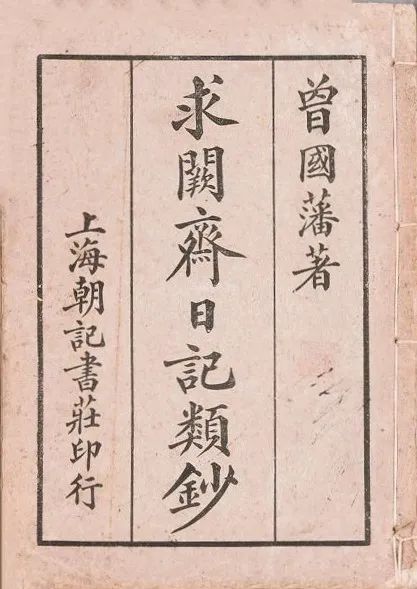 曾國藩著
求闕齋日記類鈔
上海朝記書莊印行